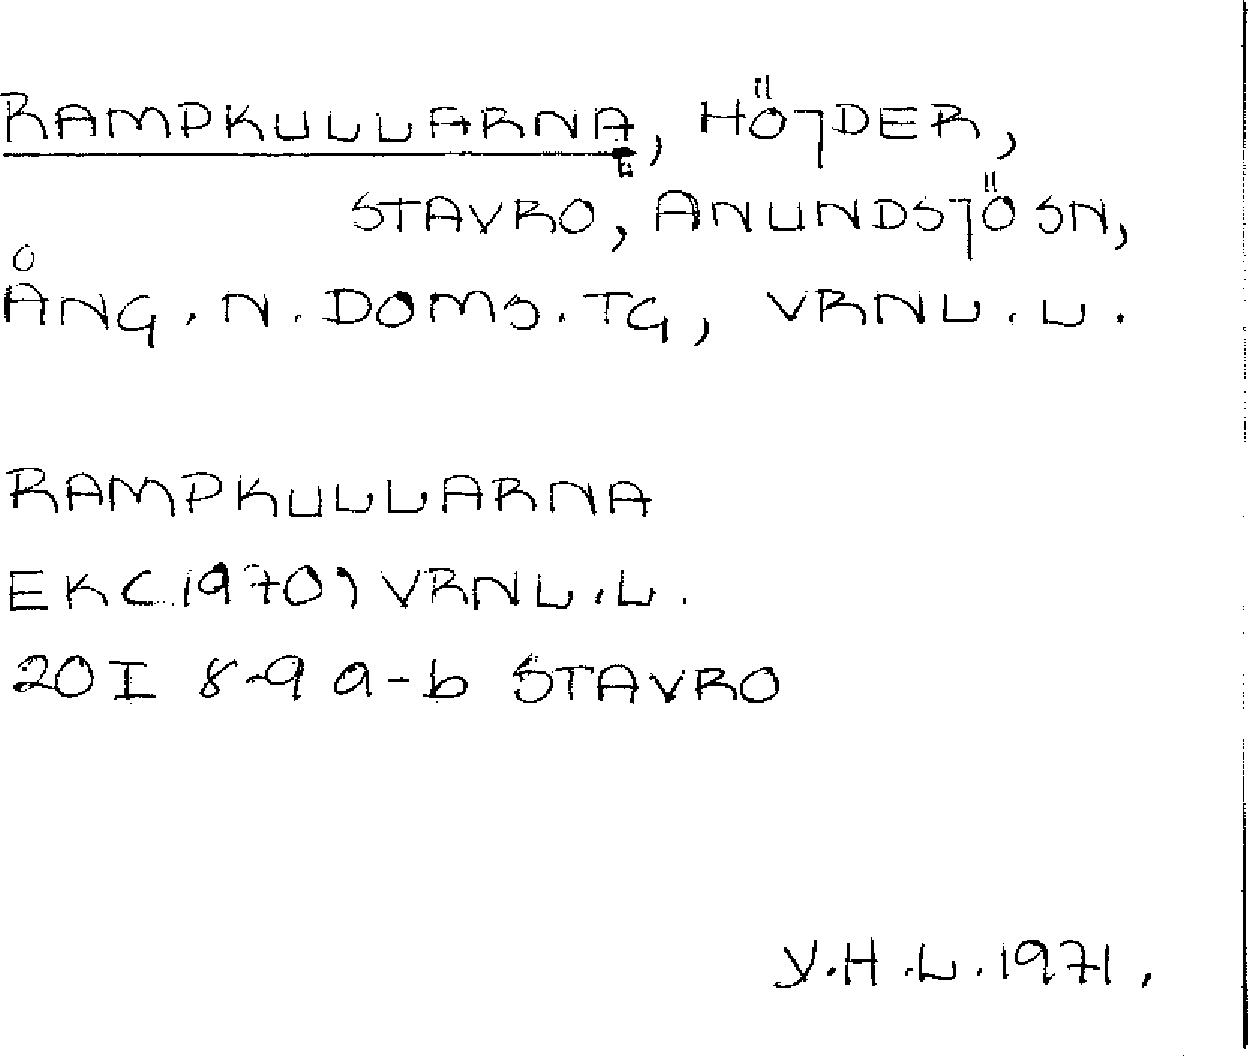 RAMPKULLARNA, HÖJDER,
STAVRO, ANUNDSJÖ SN,
ÅNG. N. DOMS. TG, VRNL. L.
RAMPKULLARNA
EK (1970) VRNL. L.
20I 8-9 a-b STAVRO
Y.H.L. 1971.